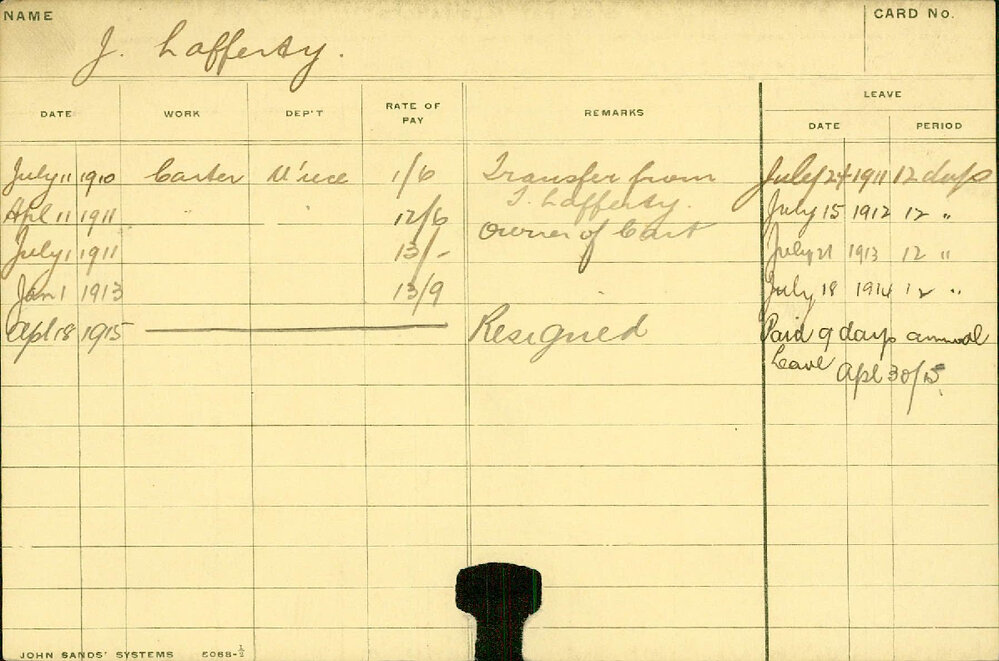 NAME
CARD No.
J. Lafferty.
DATE WORK DEP'T RATE OF PAY REMARKS LEAVE
DATE PERIOD
July 11 1910 Carter 1/6 Transfer from July 24 1911 12 days
Apl 11 1911 12/6 T. Lafferty. July 15 1912 12 "
July 1 1911 13/- Owner of Cart July 21 1913 12 "
Jan 1 1913 13/9 July 18 1914 12 "
Apl 18 1915 Resigned Paid 9 days annual
Leave Apl 30/15
JOHN SANDS' SYSTEMS 5068-½